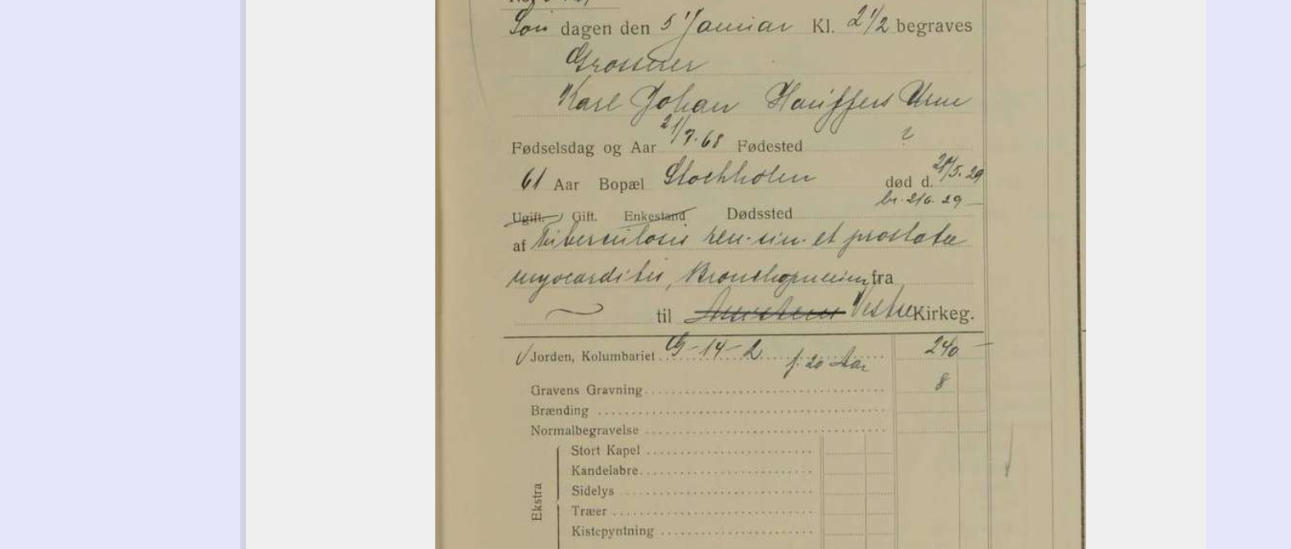 Søn dagen den 5' Januar Kl. 2 1/2 begraves
Grosserer
Karl Johan Hauffers Urne
Fødselsdag og Aar 21/7.68 Fødested ?
61 Aar Bopæl Stockholm død d. 28/5.29
br. 2/6.29
Ugift. Gift. Enkestand Dødssted
af Tuberculosis ren. sin. et prostatae
myocarditis, Bronchopneumoni fra
til Vestre Kirkeg.
Jorden, Kolumbariet 14-2 f. 20 Aar 240
Gravens Gravning 8
Brænding
Normalbegravelse
Ekstra
Stort Kapel
Kandelabre
Sidelys
Træer
Kistepyntning